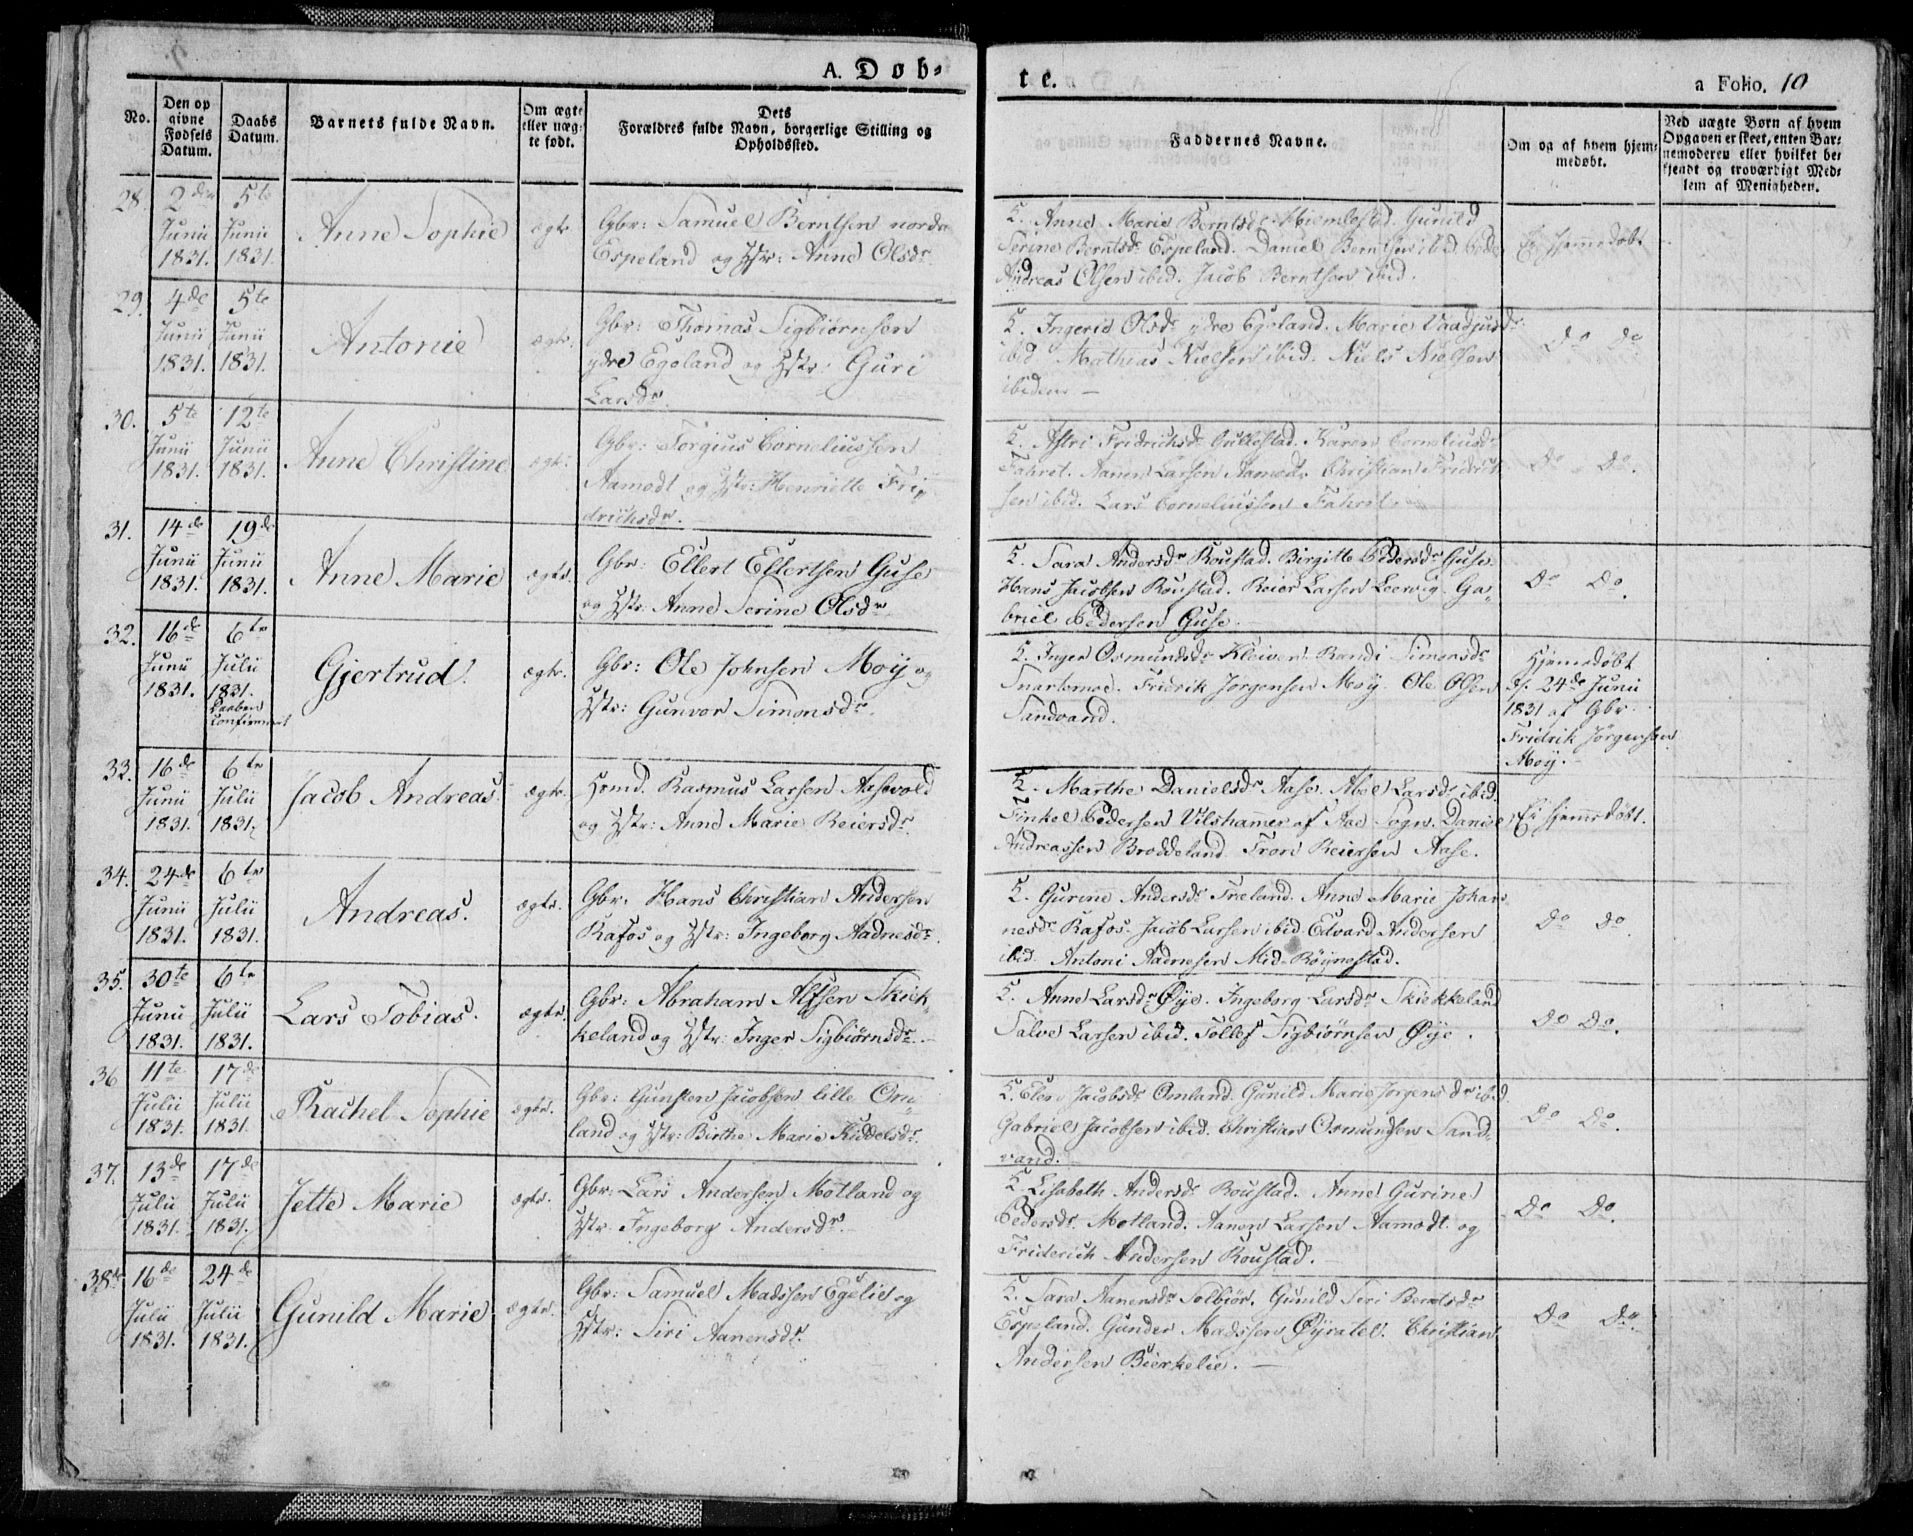 A. Døb-
te.
a Folio, 10
No.
Den op
givne
Fødsels
Datum.
Daabs
Datum.
Barnets fulde Navn.
Om ægte
eller uæg-
te født.
Dets
Forældres fulde Navn, borgerlige Stilling og
Opholdssted.
Faddernes Navne.
Om og af hvem hjem-
medøbt.
Ved uægte Børn af hvem
Opgaven er skeet, enten Bar-
nemoderen eller hvilket be-
kjendt og troværdigt Med-
lem af Menigheden.
28
2den
Junii
1831.
5te
Junii
1831.
Anne Sophie
ægte
Gbr: Samuel Berntsen nordre
Espeland og Hstr: Anne Olsdr
Anne Marie Berntsdr Gunild
Serine Berntsdr Espeland. Daniel Berntsen ibid. Peder
Andreas Olsen ibid. Jacob Berntsen ibid.
Ei Hjemmedøbt
29.
4de
Junii
1831.
5te
Junii
1831.
Antonie
ægte.
Gbr: Thomas Sigbiørnsen
ydre Egeland og Hstr: Guri
Larsdr
Ingerid Olsdr ydre Egeland. Marie
ibid. Mathias Nielsen ibid. Niels Nielsen
ibidem —
Do Do
30.
5te
Junii
1831.
12te
Junii
1831.
Anne Christine
ægte.
Gbr: Torgius Corneliussen
Aamodt og Hstr: Henriette Fri-
drichsdr.
Astri Fridrichsdr Karen Corneliusdr
Fahret. Aanen Larsen Aamodt. Christian Fridrich
sen ibid. Lars Corneliussen Fahret.
Do Do.
31.
14de
Junii
1831.
19de
Junii
1831.
Anne Marie
ægte.
Gbr: Ellert Ellertsen Guse
og Hstr: Anne Serine Olsdr
Sara Andersdr Roustad. Birgitte Pedersdr Guse.
Hans Jacobsen Roustad. Reier Larsen Leervig. Ga-
briel Pedersen Guse.
Do Do.
32.
16de
Junii
1831.
6te
Julii
1831.
Daaben
Confirmeret
Gjertrud.
ægte.
Gbr: Ole Johnsen Moij og
Hstr: Gunvor Simonsdr.
Inger Osmundsdr Kleiven. Randi Simonsdr
Snartemoe. Fridrik Jørgensen Moy. Ole Olsen
Sandvand.
Hjemedøbt
d. 24de Junii
1831 af Gbr.
Fridrik Jørgensen
Moij.
33.
16de
Junii
1831.
6te
Julii
1831.
Jacob Andreas
ægte.
Rasmus Larsen Aasevold
og Hstr: Anne Marie Reiersdr.
Marthe Danielsdr Aase. Abel Larsdr ibid.
Tinkel Pedersen Vilshammer af Aae Sogn. Daniel
Andreassen Broddeland. Tron Reiersen Aase.
Ei hjemmedøbt.
34.
24de
Junii
1831.
6te
Julii
1831.
Andreas.
ægte.
Gbr. Hans Christian Andersen
Rafos og Hstr: Ingeborg Aadnesdr.
Gurine Andersdr Træland. Anne Marie Johan-
nesdr Rafos. Jacob Larsen ibid. Edvard Andersen
ibid. Antoni Aadnesen Mid-Røijnestad.
Do Do.
35.
30te
Junii
1831.
6te
Julii
1831.
Lars Tobias.
ægte.
Gbr: Abraham Alfsen Skiek-
keland og Hstr: Inger Sigbiørnsdr.
Anne Larsdr Øije. Ingeborg Larsdr Skiekkeland
Salve Larsen ibid. Tollef Sigbiørnsen Øije.
Do Do.
36
11te
Julii
1831.
17de
Julii
1831.
Rachel Sophie
ægte.
Gbr: Gunsten Jacobsen lille Om-
land og Hstr: Birthe Marie Kiddelsdr.
Elen Jacobsdr Omland. Gunild Marie Jørgensdr ibid.
Gabriel Jacobsen ibid. Christian Osmundsen Sand-
vand.
Do Do.
37.
13de
Julii
1831.
17de
Julii
1831.
Jette Marie
ægte.
Gbr: Lars Andersen Motland og
Hstr: Ingeborg Andersdr.
Lisabeth Andersdr Roustad. Anne Gurine
Pedersdr Motland. Aanen Larsen Aamodt og
Friderich Andersen Roustad.
Do Do.
38de
16de
Julii
1831.
24de
Julii
1831.
Gunild Marie
ægte.
Gbr: Samuel Madssen Egelie og
Hstr: Siri Aanensdr.
Sara Aanensdr Solbiør. Gunild Siri Berntsdr
Espeland. Gunder Madssen Christian
Andersen Bierkelie. —
Do Do.